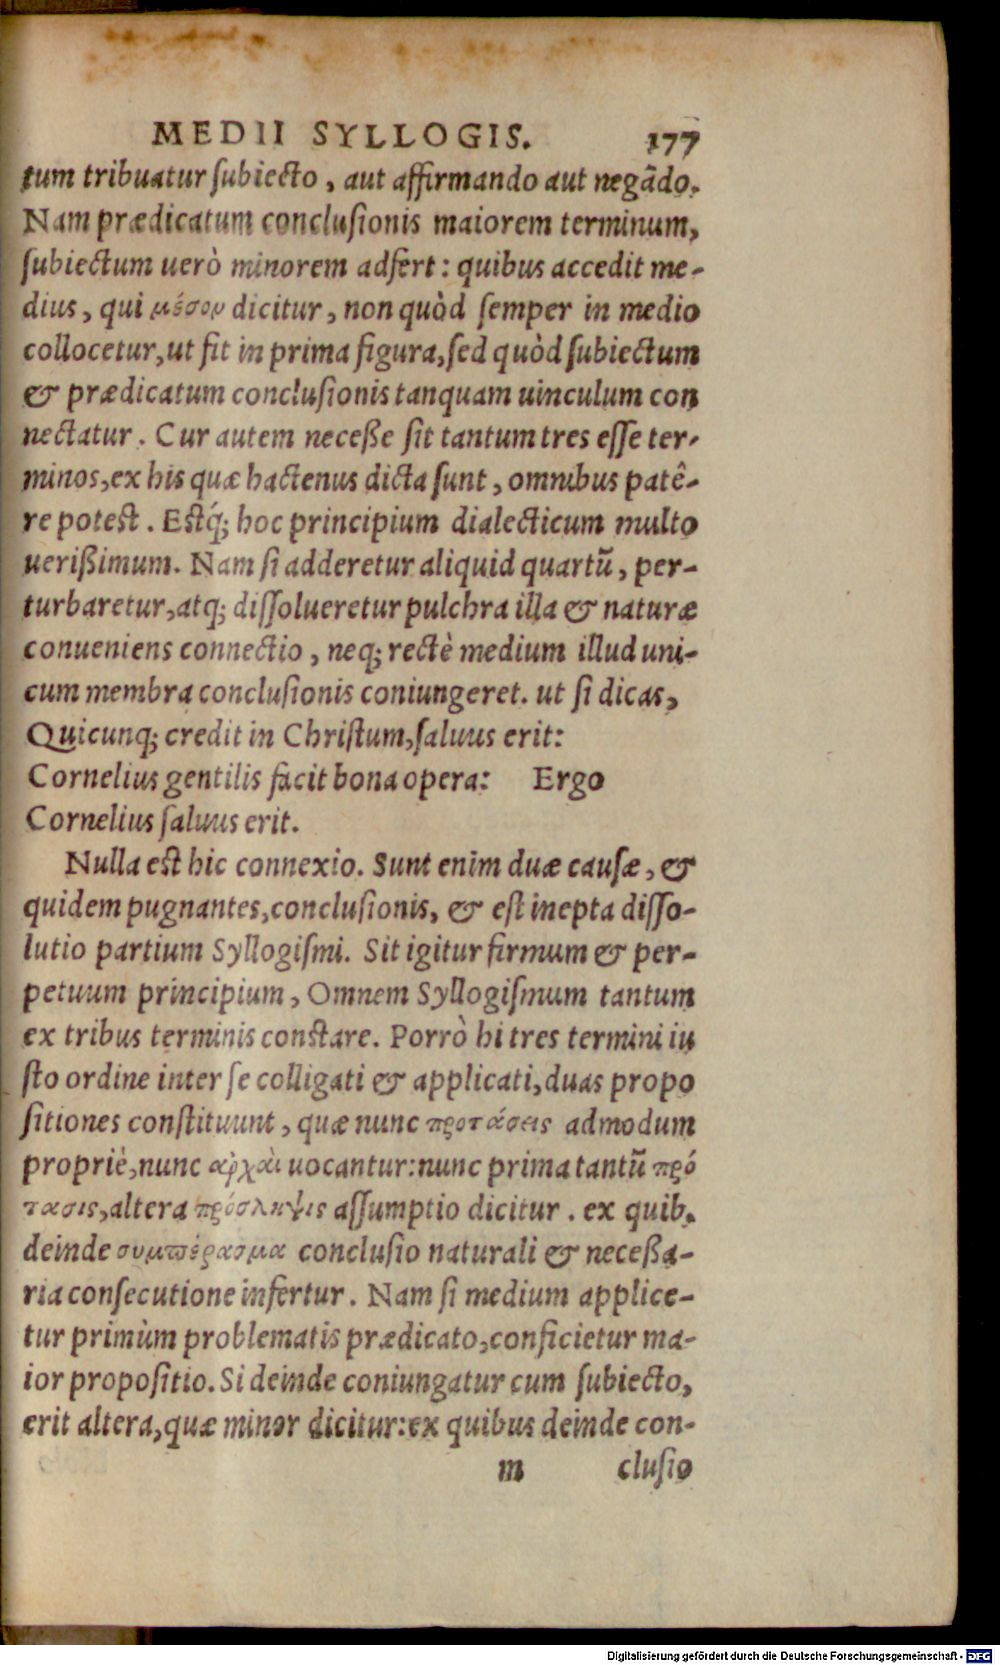 MEDII SYLLOGIS. 177
tum tribuatur ſubiecto, aut affirmando aut negãdo.
Nam prædicatum concluſionis maiorem terminum,
ſubiectum uerò minorem adfert: quibus accedit me-
dius, qui μέσον dicitur, non quòd ſemper in medio
collocetur, ut fit in prima figura, ſed quòd ſubiectum
& prædicatum concluſionis tanquam uinculum con
nectatur. Cur autem neceße ſit tantum tres eſſe ter-
minos, ex his quæ hactenus dicta ſunt, omnibus patê-
re poteſt. Eſtq́; hoc principium dialecticum multo
uerißimum. Nam ſi adderetur aliquid quartũ, per-
turbaretur, atq; diſſolueretur pulchra illa & naturæ
conueniens connectio, neq; rectè medium illud uni-
cum membra concluſionis coniungeret. ut ſi dicas,
Quicunq; credit in Chriſtum, ſaluus erit:
Cornelius gentilis facit bona opera: Ergo
Cornelius ſaluus erit.
Nulla eſt hic connexio. Sunt enim duæ cauſæ, &
quidem pugnantes, concluſionis, & eſt inepta diſſo-
lutio partium Syllogiſmi. Sit igitur firmum & per-
petuum principium, Omnem Syllogiſmum tantum
ex tribus terminis conſtare. Porrò hi tres termini iu
ſto ordine inter ſe colligati & applicati, duas propo
ſitiones conſtituunt, quæ nunc προτάσεις admodum
propriè, nunc αρχὰι uocantur: nunc prima tantũ πρό
τασις, altera πρόσληψις aſſumptio dicitur. ex quib.
deinde συμπέρασμα concluſio naturali & neceßa-
ria conſecutione infertur. Nam ſi medium applice-
tur primùm problematis prædicato, conficietur ma-
ior propoſitio. Si deinde coniungatur cum ſubiecto,
erit altera, quæ minor dicitur: ex quibus deinde con-
m cluſio
Digitalisierung gefördert durch die Deutsche Forschungsgemeinschaft - DFG